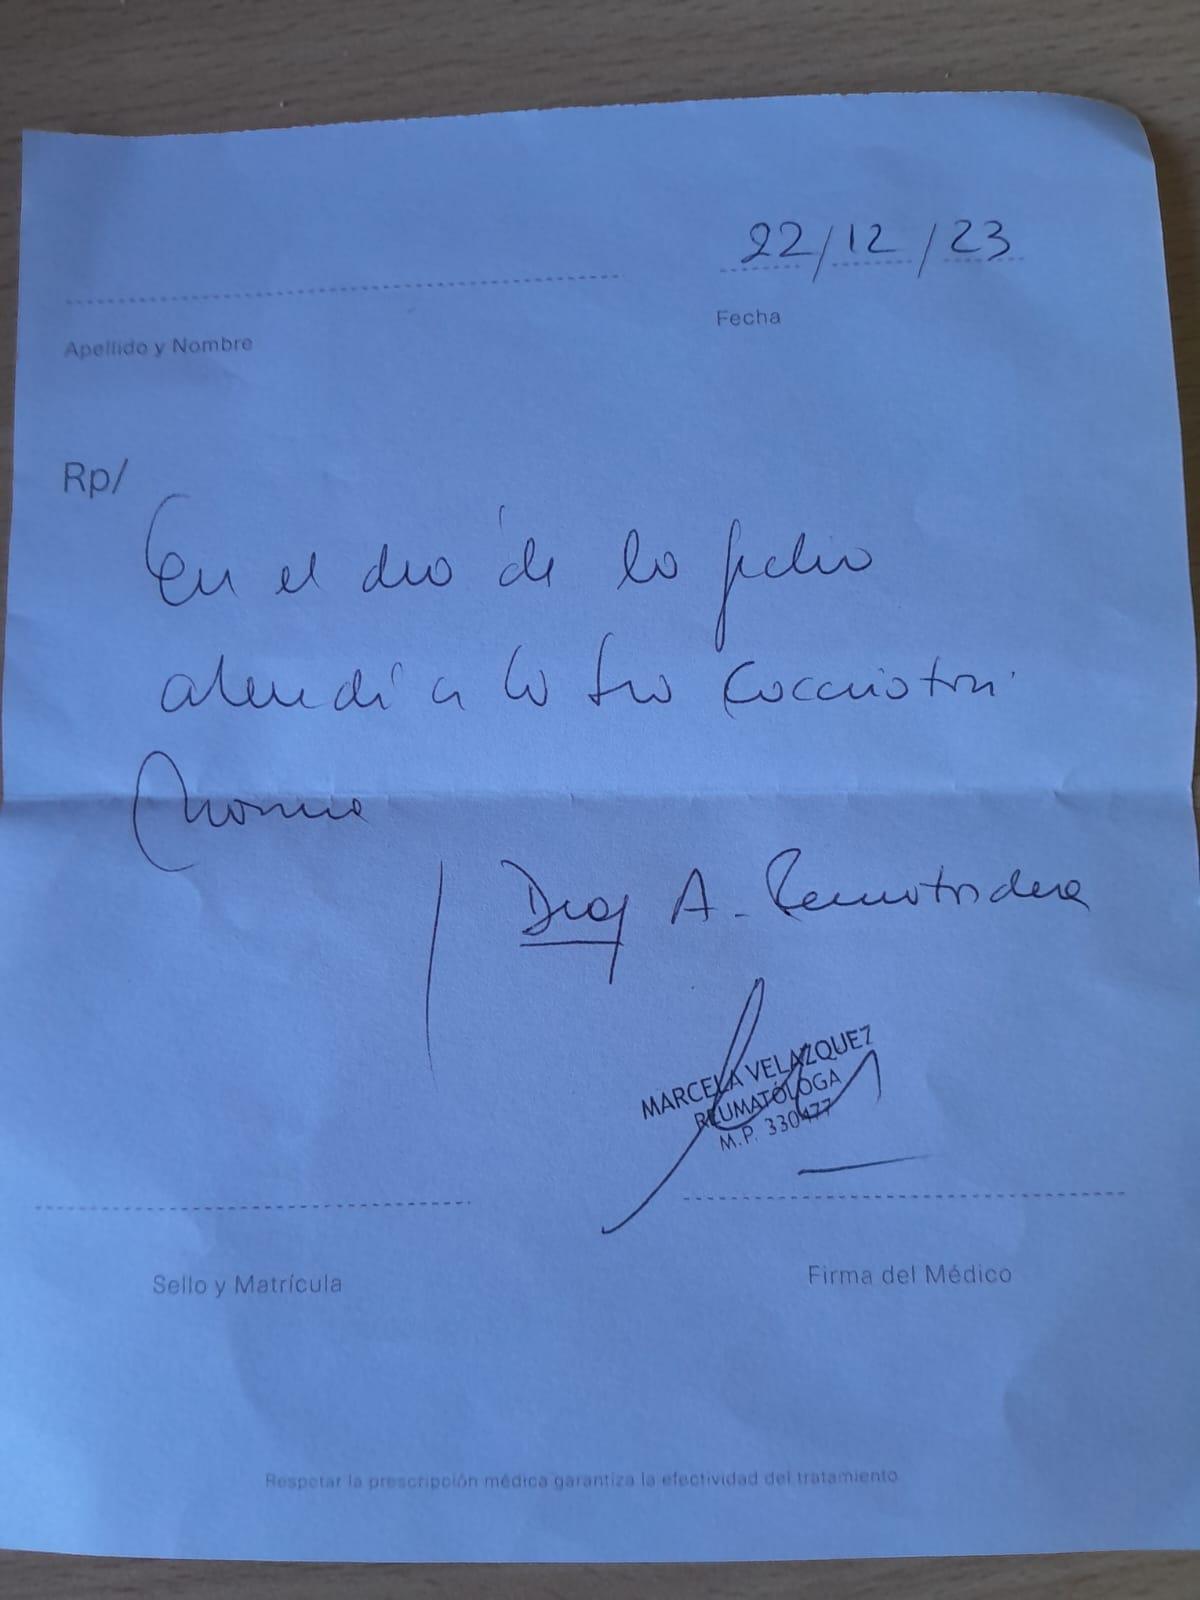 22/12/23
Apellido y Nombre
Fecha
Rp/
En el día de la fecha
atendí a la Sra
Diag A. Reumatoidea
MARCELA VELAZQUEZ
REUMATÓLOGA
M.P. 330477
Sello y Matrícula
Firma del Médico
Respetar la prescripción médica garantiza la efectividad del tratamiento